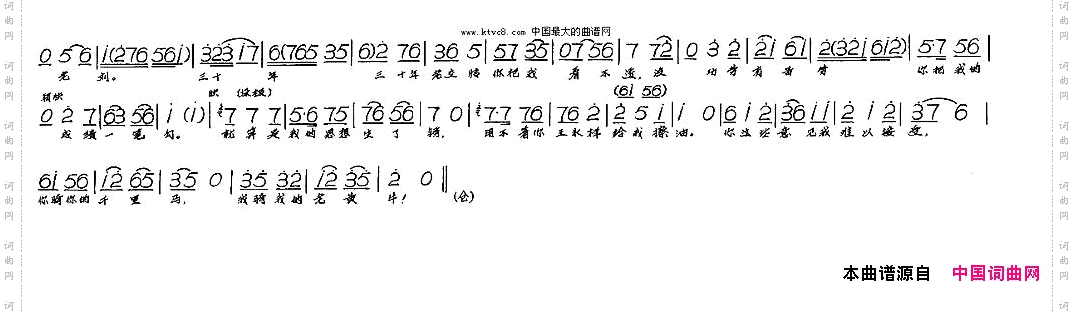 www.ktvc8.com 中国最大的曲谱网
0 5 6 | i(276 56i) | 323 i7 | 6(765 35 | 6)2 76 | 36 5 | 57 35 | 07 56 | 7 72 | 0 3 2 | 2i 6i | 2(32i 6i2) | 5·7 56 |
三十 年 三十年 你把我 看 不 透, 没 功劳有苦劳 你把我的
稍快 (6i 56)
0 2 7 | 63 56 | i (i) | 7 7 7 | 5·6 75 | 76 56 | 7 0 | 7·7 76 | 76 2 | 2 5 i | i 0 | 6 i 2 | 36 ii | 2 i 2 | 37 6 |
成绩一笔勾。 就算是我的思想生了锈, 用不着你 给我擦油。 你这些意见我难以接受,
6i 56 | i2 65 | 35 0 | 35 32 | i2 35 | 2 0 ‖
你骑你的千里马, 我骑我的老黄牛! (仓)
本曲谱源自 中国词曲网
词曲网
词曲网
词曲网
词曲网